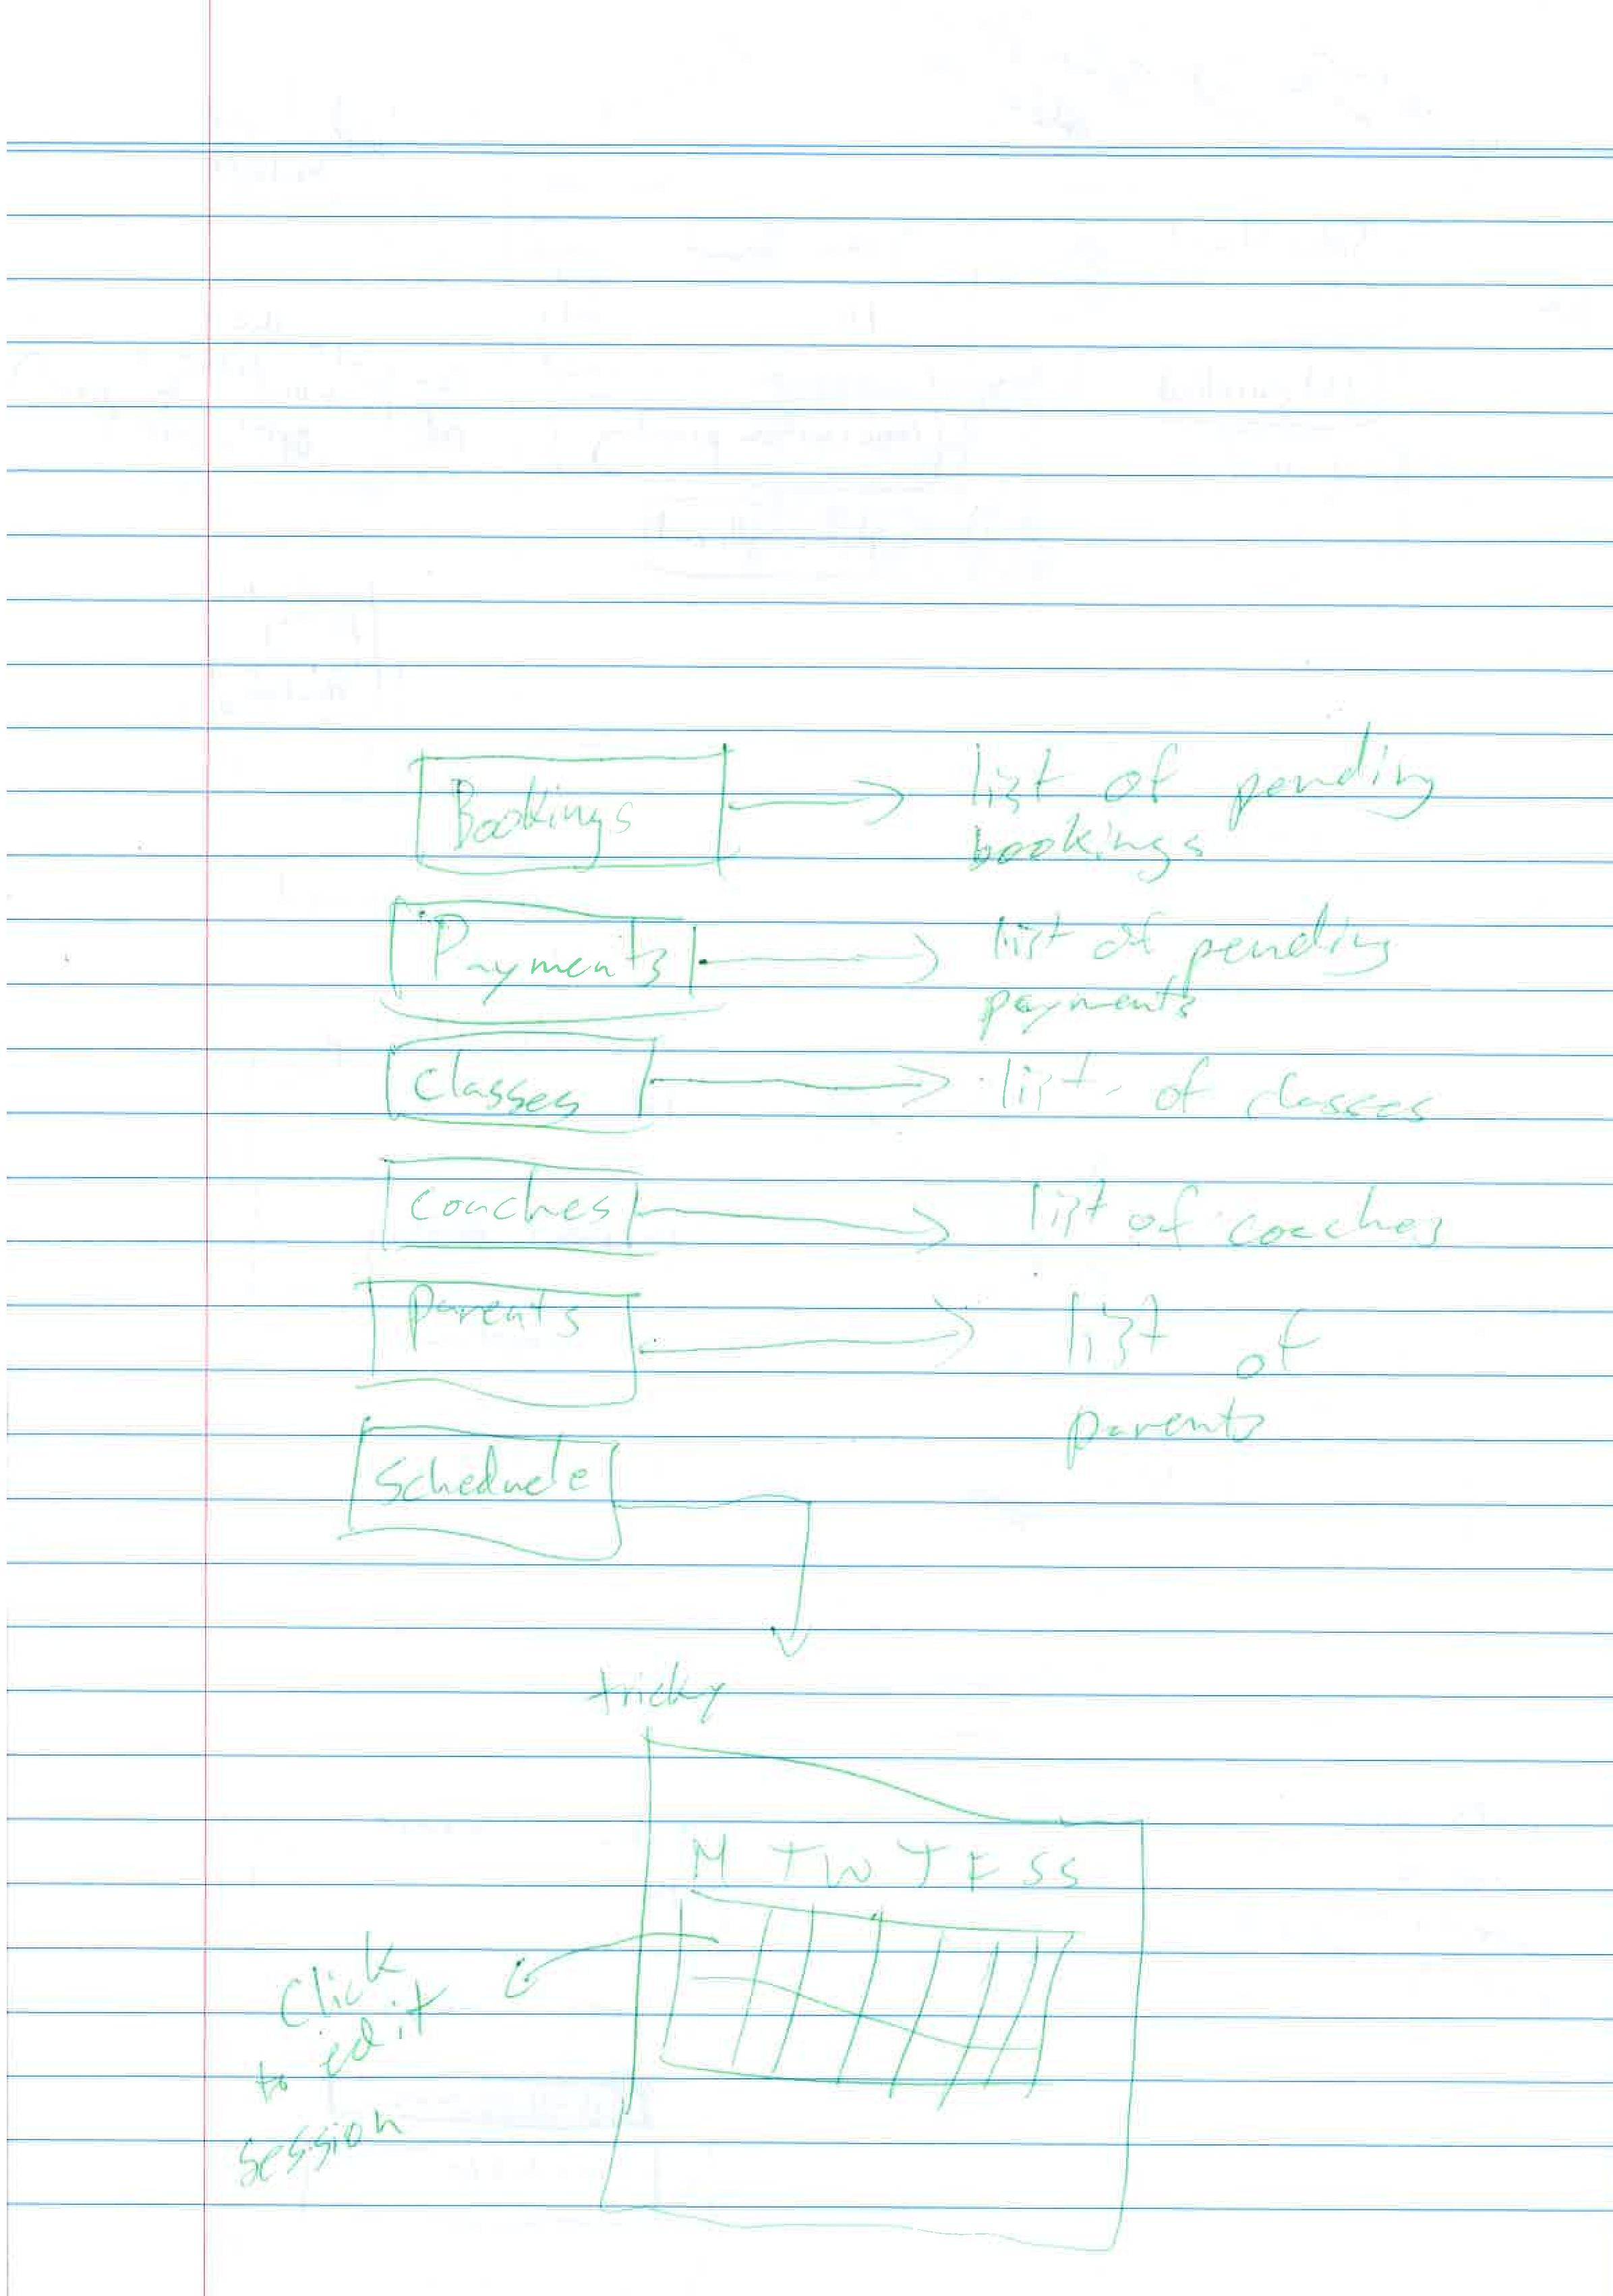 Bookings
list of pending
bookings
Payments
list of pending
payments
Classes
list of classes
Coaches
list of coaches
Parents
list of
parents
Schedule
tricky
M T W T F S S
Click
to edit
session